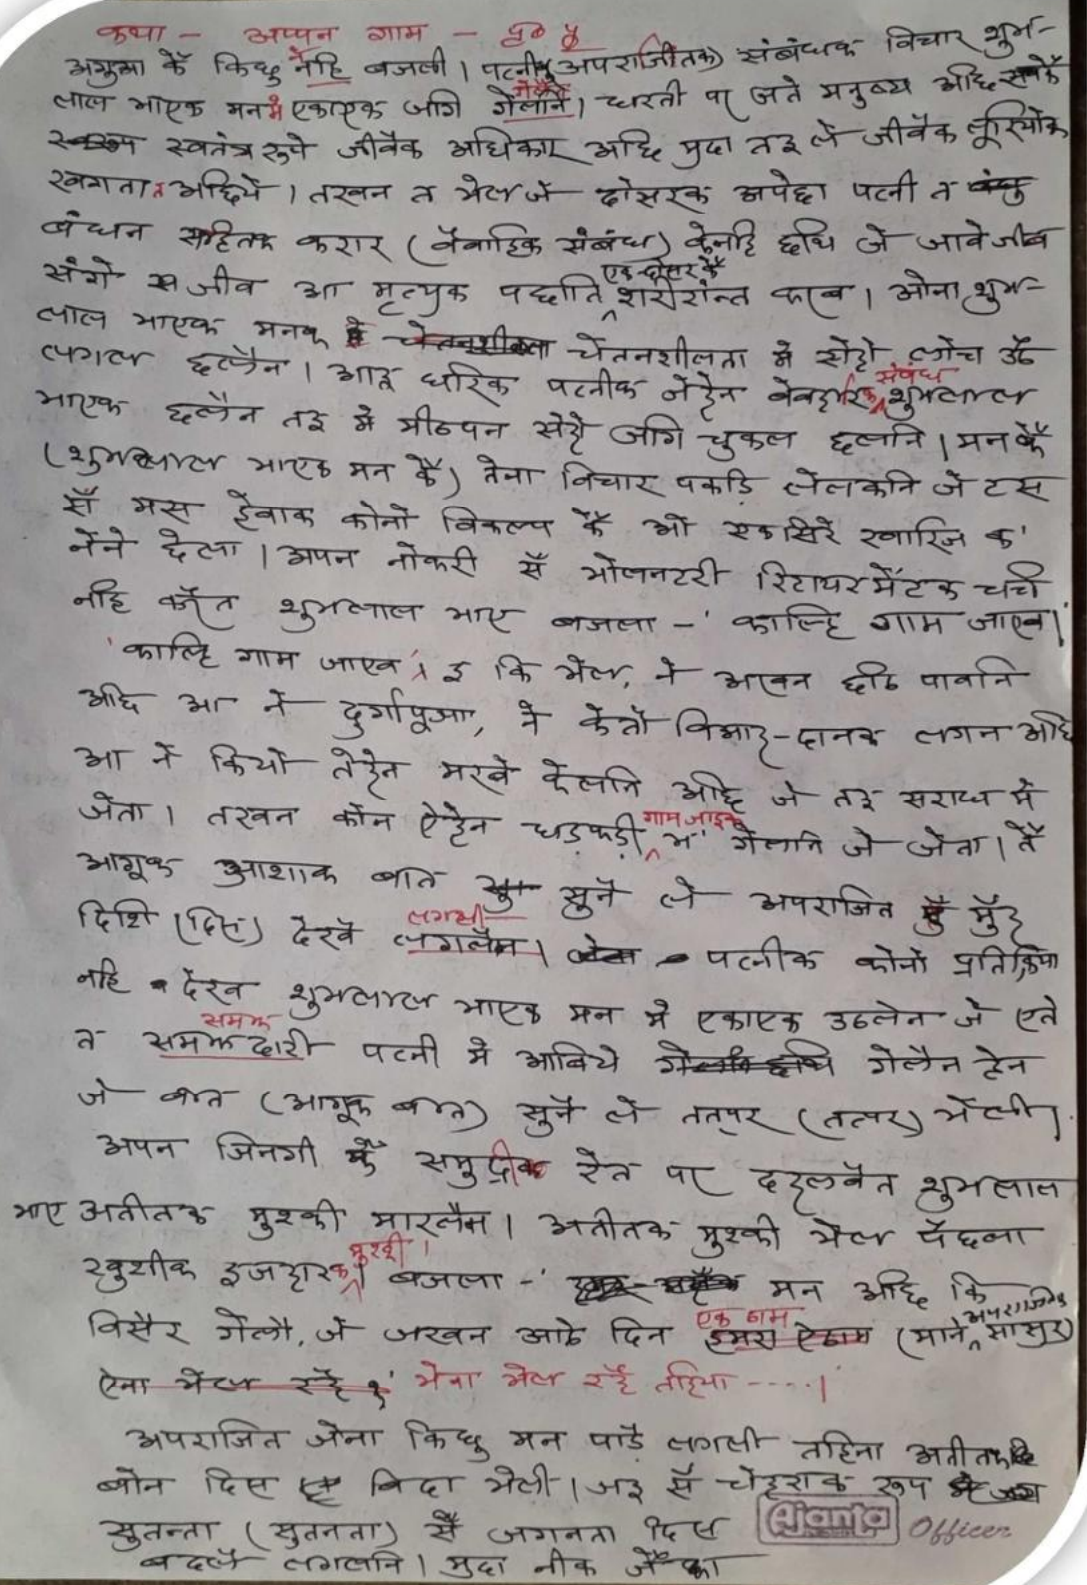 कथा - अप्पन गाम - पृ० ८
अगुआ कें किछु नहि बजली। पत्नीक (अपराजीतक) संबंधक विचार शुभ-
लाल भाएक मनमे एकाएक जागि गेलनि। धरती पर जते मनुष्य अछि सबकें
स्वतंत्र रूपे जीबैक अधिकार अछि मुदा तइ ले जीबैक लूरियोक
खगता त अछिये। तखन त भेल जे दोसरक अपेछा पत्नी त
बंधन सहितक करार (वैवाहिक संबंध) केनहि छथि जे जावे जीब
संगे सजीव आ मृत्युक पछाति एक-दोसर कें शरीरांन्त करब। ओना, शुभ-
लाल भाएक मनक चेतनशीलता मे सेहो लोच उठ
लगल छलैन। आइ धरिक पत्नीक जेहेन बेवहारिक संबंध शुभलाल
भाएक छलैन तइ मे मीठपन सेहो जागि चुकल छलनि। मन कें
(शुभलाल भाएक मन कें) तेना विचार पकड़ि लेलकनि जे टस
सँ मस हेबाक कोनो विकल्प कें ओ एकसिरे खारिज क'
नेने छेला। अपन नोकरी सँ भोलनटरी रिटायरमेंटक चर्चा
नहि करैत शुभलाल भाए बजला - 'काल्हि गाम जाएब।'
'काल्हि गाम जाएब', इ कि भेल, ने अखन छठि पावनि
अछि आ ने दुर्गापूजा, ने केतौ बिआह-दानक लगन अछि
आ ने कियो तेहेन मरबे केलनि अछि जे तइ सराध मे
जेता। तखन कोन ऐहेन धड़फड़ी गाम जाइक भ' गेलनि जे जेता। तैं
आगूक आशाक बात सुनै ले अपराजित मुँह
दिशि (दिस) देखै लगली। पत्नीक कोनो प्रतिक्रिया
नहि देख शुभलाल भाएक मन मे एकाएक उठलैन जे एते
त समझदारी समझ पत्नी मे आबिये गेलैन हेन
जे बात (आगूक बात) सुनै ले तत्पर (तत्पर) भेली।
अपन जिनगी कें समुद्रीक रेत पर टहलबैत शुभलाल
भाए अतीतक मुस्की मारलैन। अतीतक मुस्की भेल पैछला
खुशीक इजहारक मुस्की। बजला - ' मन अछि कि
बिसैर गेलौ, जे जखन आठे दिन एक ठाम (माने अपराजितक सासुर)
ऐना भेल रहै ?' भेना भेल रहै तहिया ----।
अपराजित जेना किछु मन पाड़ै लगली तहिना अतीतक
बोन दिस बिदा भेली। जइ सँ चेहराक रूप
सुतन्ता (सुतनता) सँ जगनता दिस
बदलै लगलनि। मुदा नीक जकाँ
Ajanta Officer